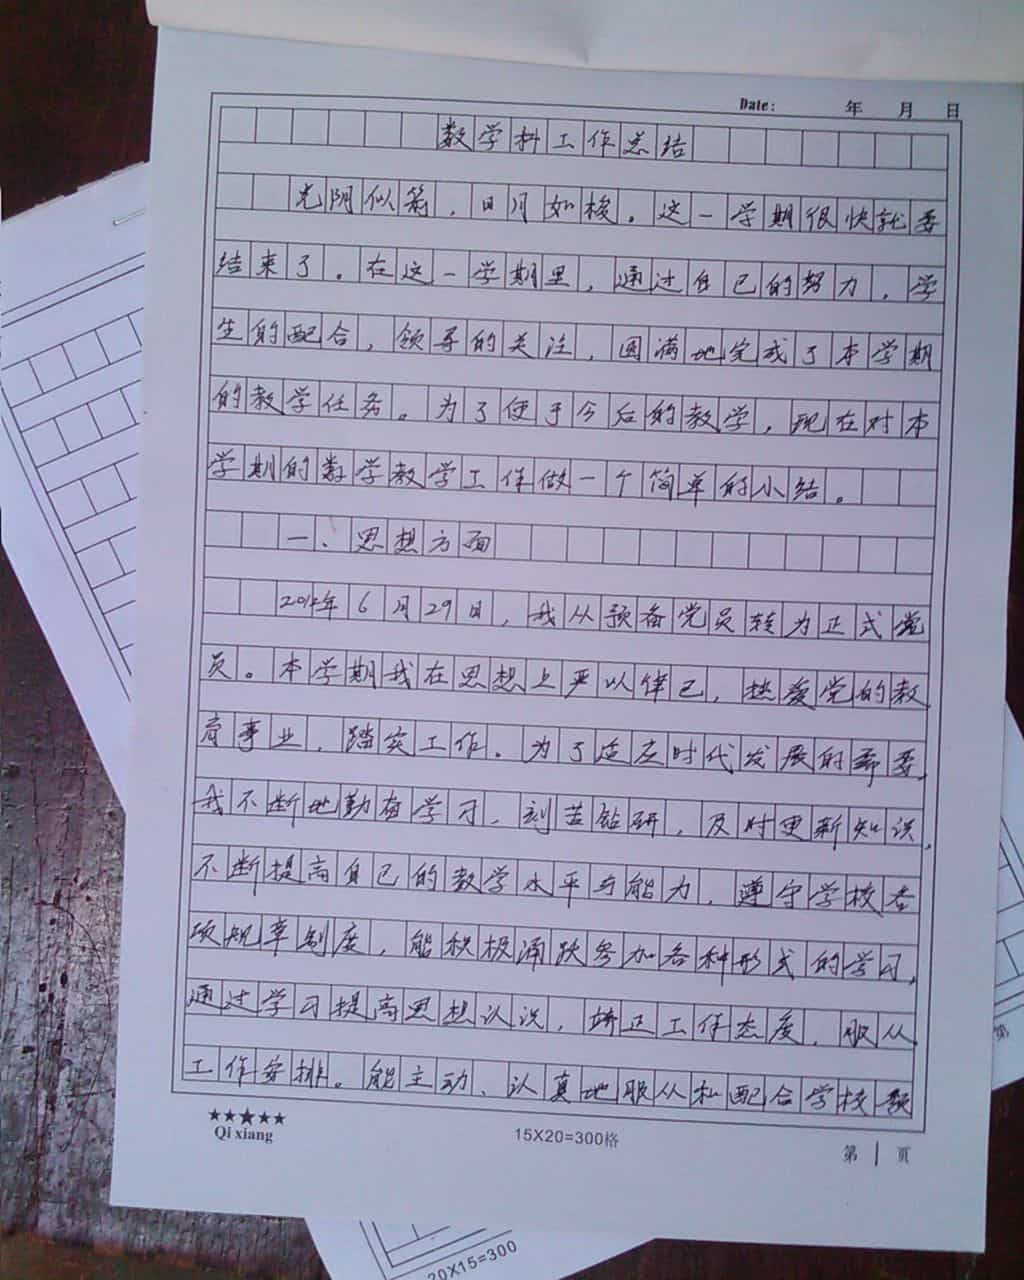 Date: 年 月 日
数学科工作总结
光阴似箭,日月如梭。这一学期很快就要
结束了。在这一学期里,通过自己的努力,学
生的配合,领导的关注,圆满地完成了本学期
的教学任务。为了便于今后的教学,现在对本
学期的数学教学工作做一个简单的小结。
一、思想方面
2014年6月29日,我从预备党员转为正式党
员。本学期我在思想上严以律己,热爱党的教
育事业,踏实工作。为了适应时代发展的需要,
我不断地勤奋学习,刻苦钻研,及时更新知识,
不断提高自己的教学水平与能力,遵守学校各
项规章制度,能积极踊跃参加各种形式的学习,
通过学习提高思想认识,端正工作态度,服从
工作安排。能主动、认真地服从和配合学校领
★★★★★
Qi xiang
15X20=300格
第 1 页
20X15=300